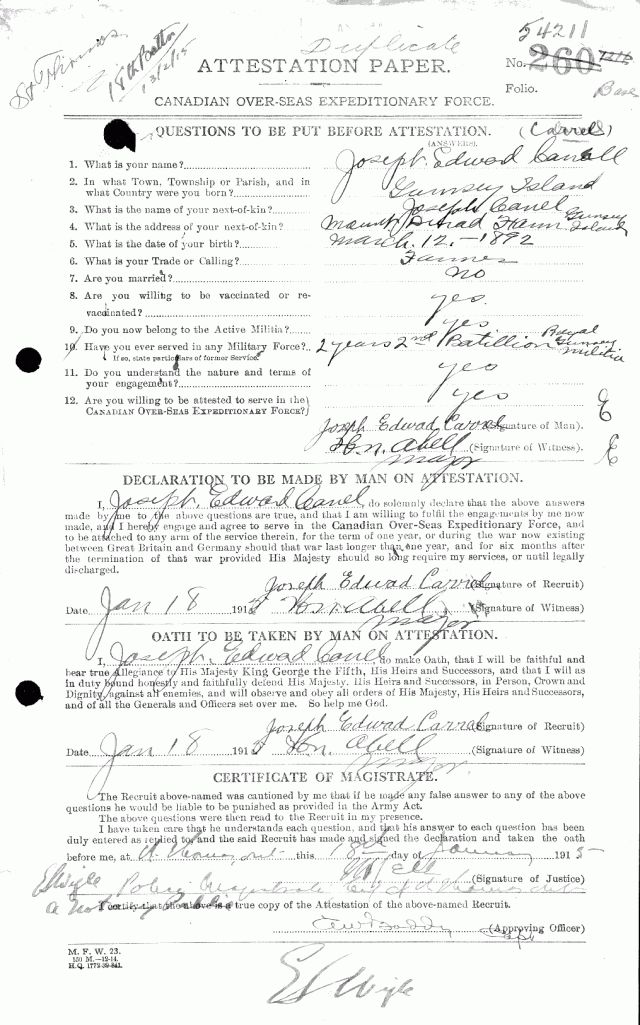 54211
Duplicate
St Thomas
18th Battn
13/2/15
ATTESTATION PAPER.
No. 260
Folio.
CANADIAN OVER-SEAS EXPEDITIONARY FORCE.
QUESTIONS TO BE PUT BEFORE ATTESTATION.
(Carrel)
(ANSWERS).
1. What is your name? Joseph Edwad Carrell
2. In what Town, Township or Parish, and in
what Country were you born? Gurnsey Island
3. What is the name of your next-of-kin? Joseph Carrel
4. What is the address of your next-of-kin? Mount Farm Gurnsey Island
5. What is the date of your birth? March. 12, - 1892
6. What is your Trade or Calling? Farmer
7. Are you married? no
8. Are you willing to be vaccinated or re-
vaccinated? yes.
9. Do you now belong to the Active Militia? yes
10. Have you ever served in any Military Force? 2 years 2nd Batillion Royal Gurnsey Militia
If so, state particulars of former Service.
11. Do you understand the nature and terms of
your engagement? yes
12. Are you willing to be attested to serve in the
CANADIAN OVER-SEAS EXPEDITIONARY FORCE? yes
Joseph Edwad Carrel (Signature of Man).
Abell Major (Signature of Witness).
DECLARATION TO BE MADE BY MAN ON ATTESTATION.
I, Joseph Edwad Carrel, do solemnly declare that the above answers
made by me to the above questions are true, and that I am willing to fulfil the engagements by me now
made, and I hereby engage and agree to serve in the Canadian Over-Seas Expeditionary Force, and
to be attached to any arm of the service therein, for the term of one year, or during the war now existing
between Great Britain and Germany should that war last longer than one year, and for six months after
the termination of that war provided His Majesty should so long require my services, or until legally
discharged.
Joseph Edwad Carrel (Signature of Recruit)
Date Jan 18 1915 Abell Major (Signature of Witness)
OATH TO BE TAKEN BY MAN ON ATTESTATION.
I, Joseph Edwad Carrel, do make Oath, that I will be faithful and
bear true Allegiance to His Majesty King George the Fifth, His Heirs and Successors, and that I will as
in duty bound honestly and faithfully defend His Majesty, His Heirs and Successors, in Person, Crown and
Dignity, against all enemies, and will observe and obey all orders of His Majesty, His Heirs and Successors,
and of all the Generals and Officers set over me. So help me God.
Joseph Edwad Carrel (Signature of Recruit)
Date Jan 18 1915 Abell Major (Signature of Witness)
CERTIFICATE OF MAGISTRATE.
The Recruit above-named was cautioned by me that if he made any false answer to any of the above
questions he would be liable to be punished as provided in the Army Act.
The above questions were then read to the Recruit in my presence.
I have taken care that he understands each question, and that his answer to each question has been
duly entered as replied to, and the said Recruit has made and signed the declaration and taken the oath
before me, at St Thomas Ont this 18th day of January 1915
(Signature of Justice)
Police Magistrate
a Notary Public
I certify that the above is a true copy of the Attestation of the above-named Recruit.
Capt (Approving Officer)
M. F. W. 23.
150 M.—12-14.
H.Q. 1772-39-841.